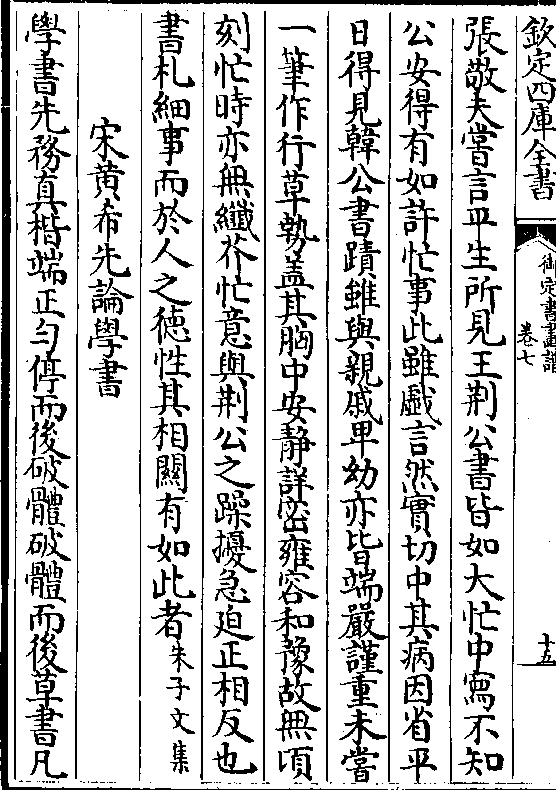 欽定四庫全書
御定書畫譜
卷七
十五
張敬夫嘗言平生所見王荆公書皆如大忙中寫不知
公安得有如許忙事此雖戲言然實切中其病因省平
日得見韓公書蹟雖與親戚卑幼亦皆端嚴謹重未嘗
一筆作行草勢盖其胸中安静詳密雍容和豫故無頃
刻忙時亦無纎芥忙意與荆公之躁擾急迫正相反也
書札細事而於人之徳性其相關有如此者朱子文集
宋黄希先論學書
學書先務真楷端正匀停而後破體破體而後草書凡